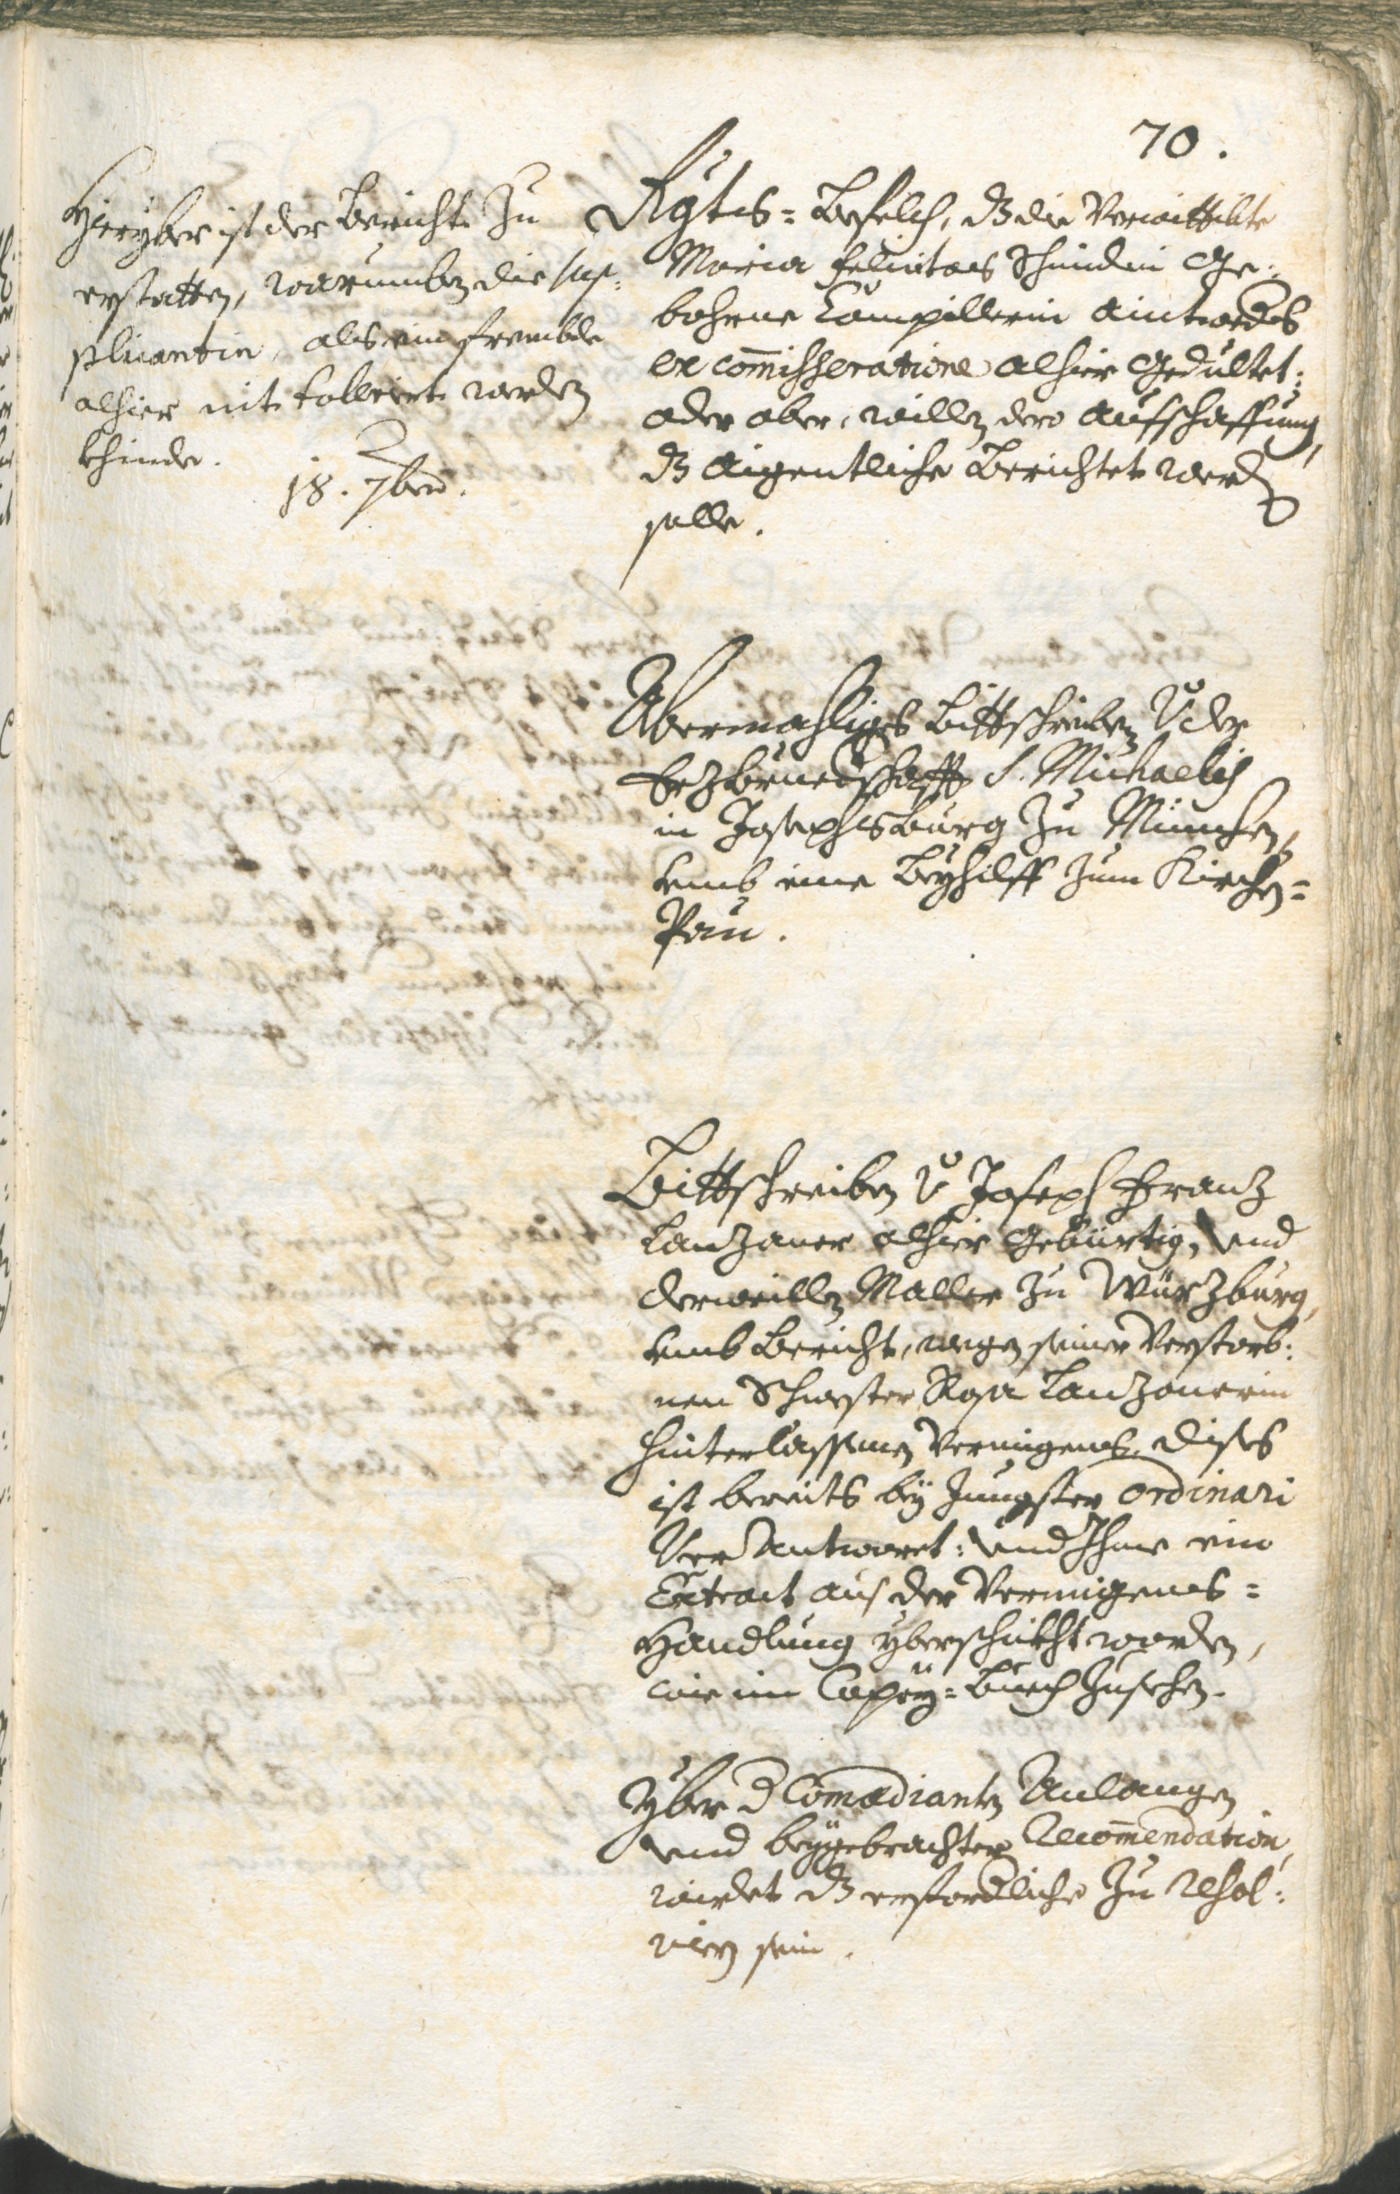 70.
Hieryber ist der Bericht zu
erstatten, warumben die sup¬
plicantin, als ein frembde
alhier nit tollerirt werden
khinde.
18. 7bris.
Rgts= Befelch, dz die Verwittibte
Maria Felicitas Schmidin Ge¬
bohrne Campillerin aintweders
ex com̄isseratione alhier gedultet:
oder aber, willen dero aufschaffung,
dz aigentliche Berichtet werden
solle.
Abermahliges Bittschreiben v der
Erzbruederschafft S. Michaelis
in Josephsburg zu München,
umb eine Beyhilff zum Kirchen=
Pau.
Bittschreiben v Joseph Franz
Lanzaner alhier gebürtig, und
derweillen Maller zu Würzburg,
umb Bericht, wegen seiner Verstorb:
nen Schwester Rosa Lanzanerin
hinterlassenen Vermigens. dises
ist bereits bey Jungster ordinari
Verantwort: und Ihme ein
Extract aus der Vermigens=
Handlung yberschickht worden,
wie im Copey=Buech zusehen.
Yber d Comædianten Anlangen
und beygebrachter Recom̄endation,
würdet dz erfordliche zu resol:
viern sein.